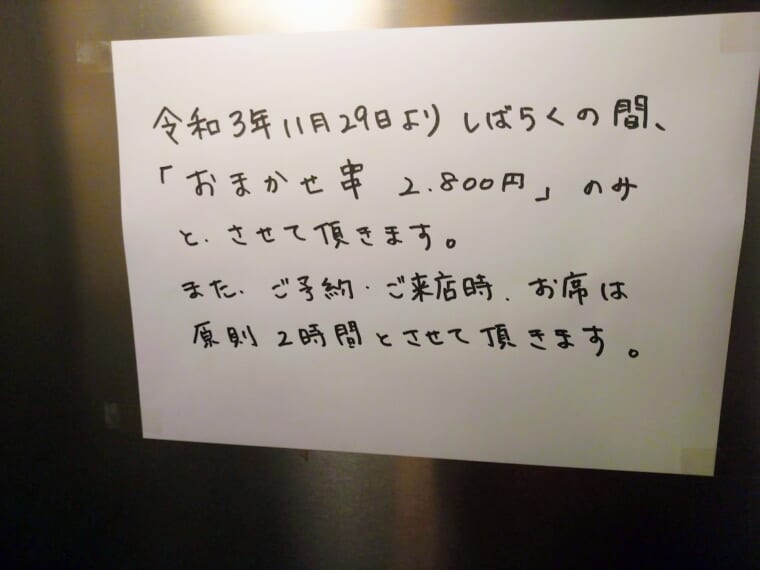 令和3年11月29日よりしばらくの間、
「おまかせ串 2.800円」のみ
と、させて頂きます。
また、ご予約・ご来店時、お席は
原則2時間とさせて頂きます。